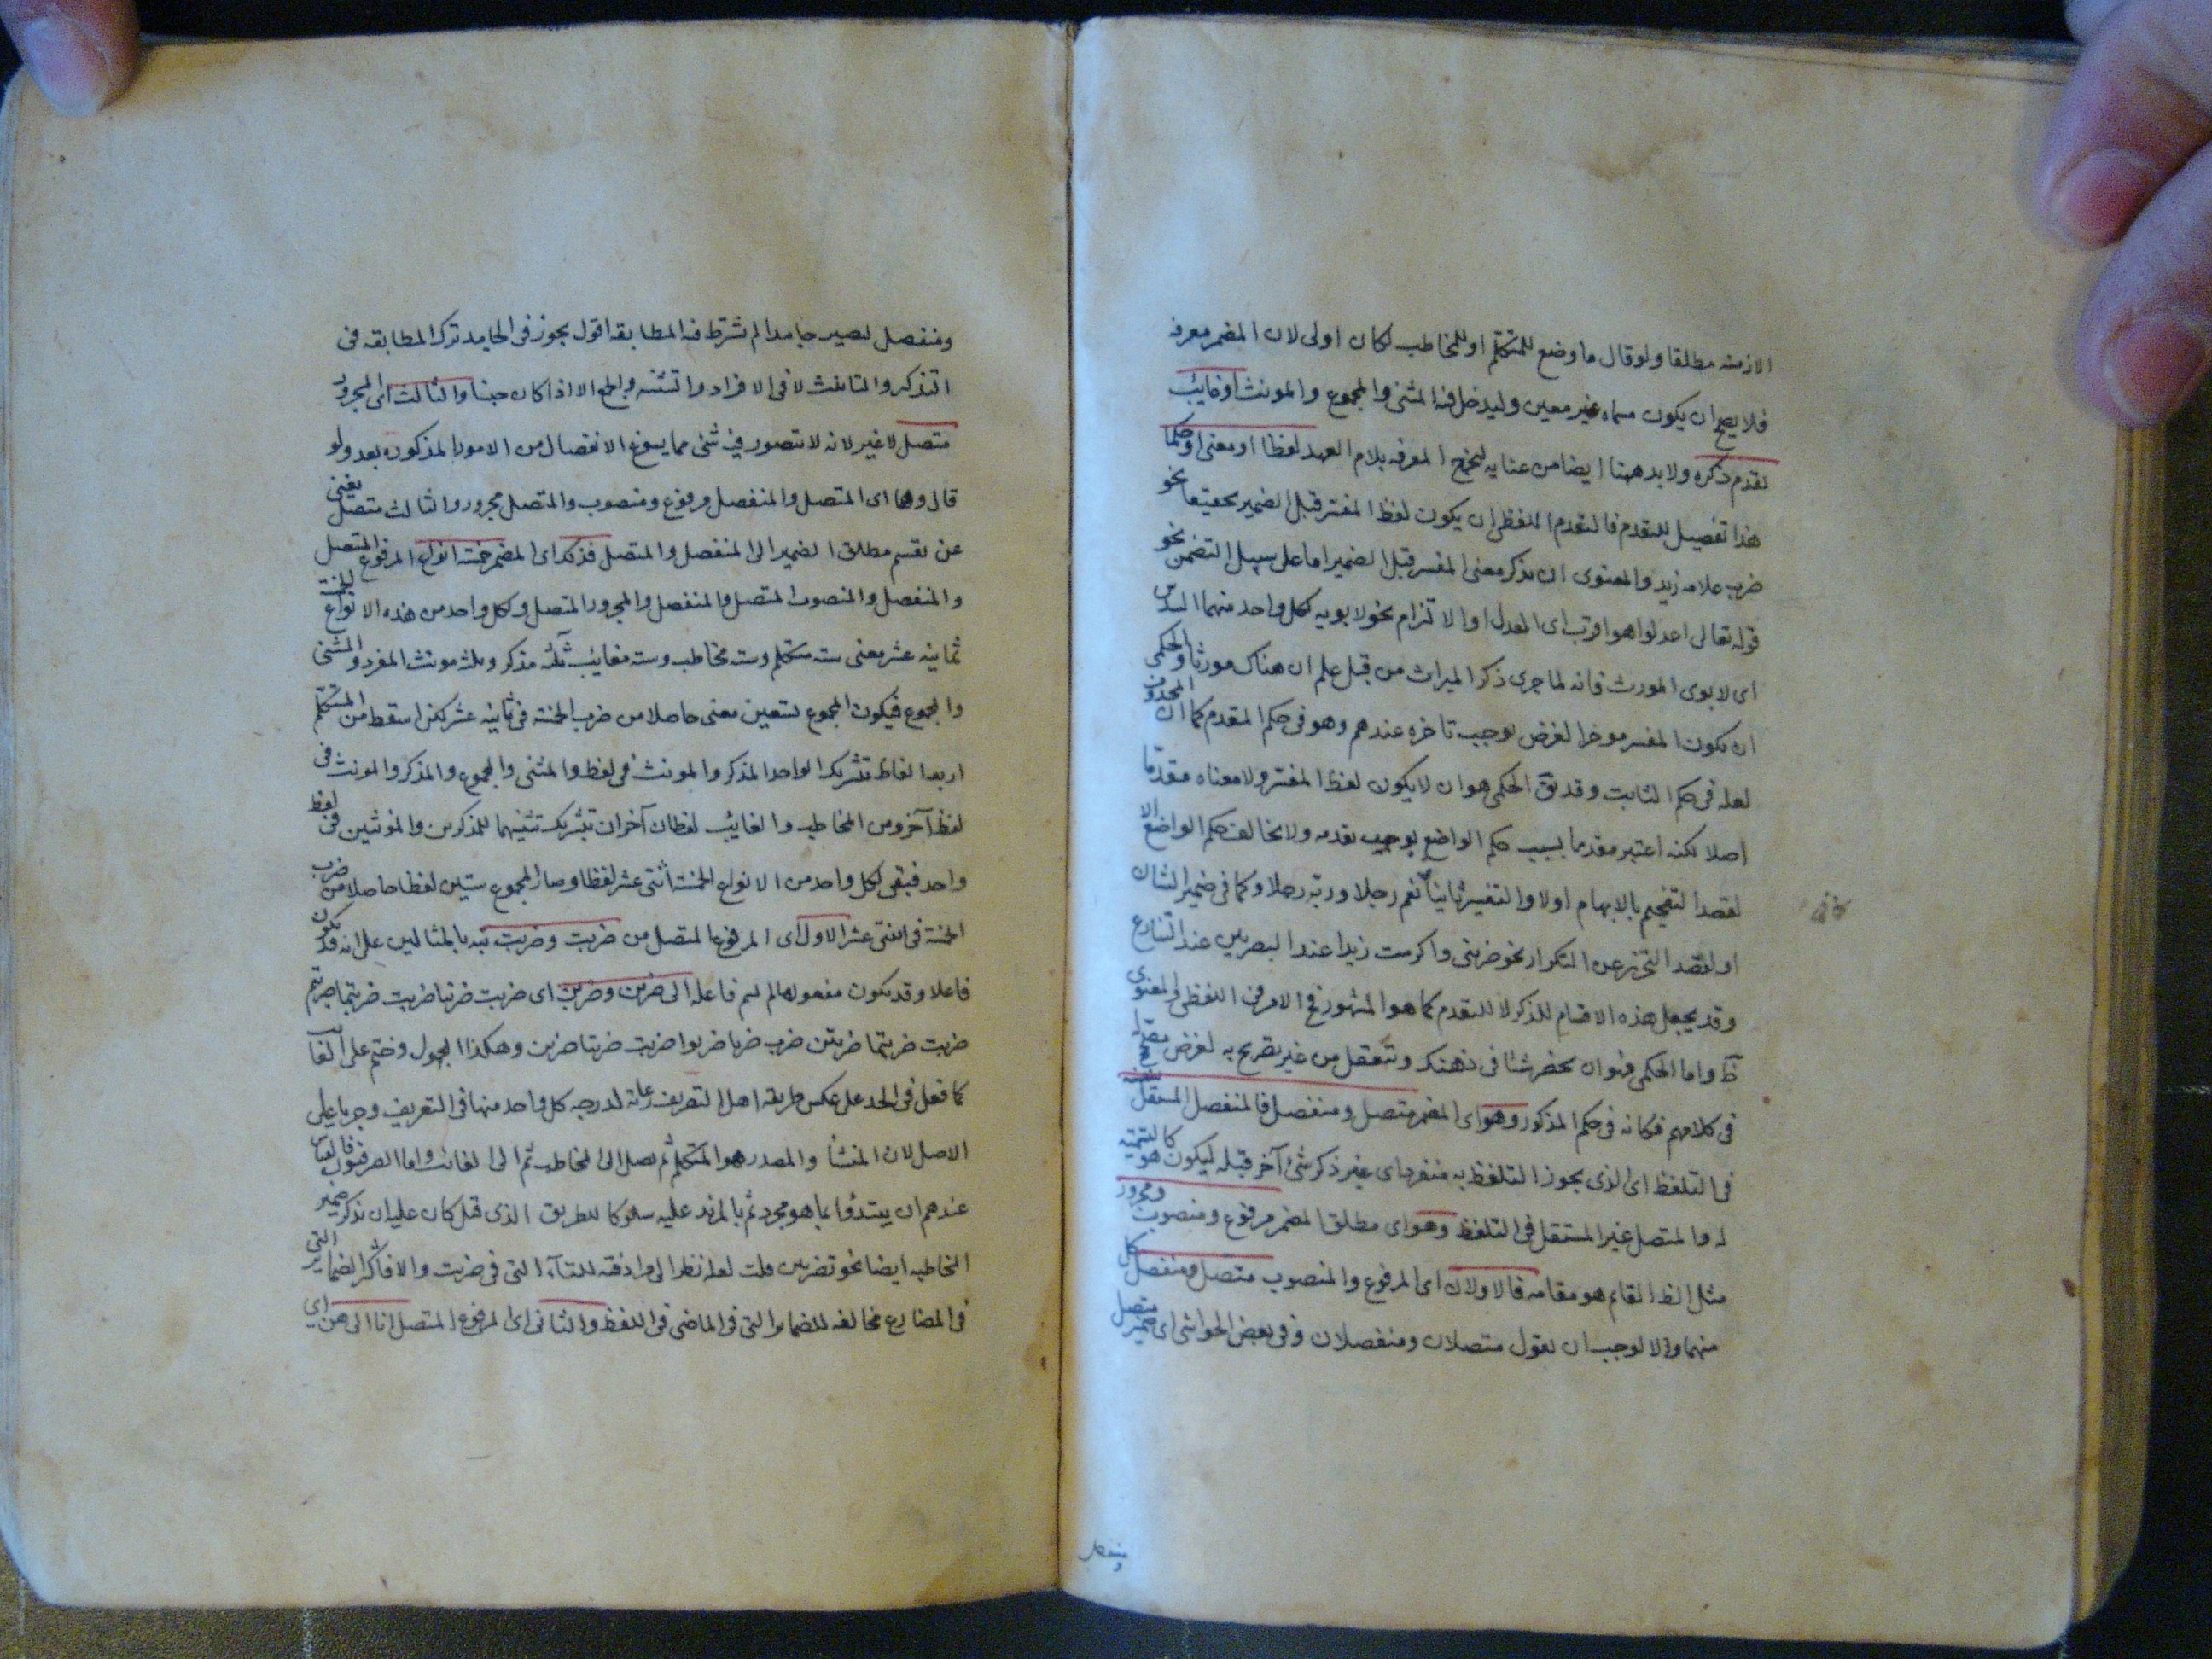 الازمنه مطلقا ولو قال ما وضع للمتكلم او للمخاطب لكان اولى لان المضمر معرفه
فلا يصح ان يكون مسماه غير معين وليدخل فيه المثنى والمجموع والمونث او غايب
تقدم ذكره ولا بد ههنا ايضا من عنايه ليخرج المعرفه بلام العهد لفظا او معنى او حكما
هذا تفصيل للتقدم فالتقدم اللفظى ان يكون لفظ المفسر قبل الضمير تحقيقا نحو
ضرب غلامه زيد والمعنوى ان يذكر معنى المفسر قبل الضمير اما على سبيل التضمن نحو
قوله تعالى اعدلوا هو اقرب اى العدل او الالتزام نحو لابويه لكل واحد منهما السدس
اى لابوى المورث فانه لما جرى ذكر الميراث من قبل علم ان هناك مورثا والحكمى
ان يكون المفسر موخرا لغرض يوجب تاخره عندهم وهو فى حكم المقدم كما ان المحذوف
لعله فى حكم الثابت وقد يق الحكمى هو ان لا يكون لفظ المفسر ولا معناه مقدما
اصلا لكنه اعتبر مقدما بسبب حكم الواضع بوجوب تقدمه ولا يخالف حكم الواضع الا
لقصد التفخيم بالابهام اولا والتفسير ثانيا نعم رجلا وربه رجلا وكما فى ضمير الشان
او لقصد التحرز عن التكرار نحو ضربنى واكرمت زيدا عند البصريين عند التنازع
وقد يجعل هذه الاقسام للذكر لا للتقدم كما هو المشهور فح الامر فى اللفظى والمعنوى
ظ واما الحكمى فهو ان يحضر شئا فى ذهنك وتتعقل من غير تصريح به لغرض
فى كلامهم فكانه فى حكم المذكور وهو اى المضمر متصل ومنفصل فالمنفصل المستقل بنفسه
فى التلفظ اى الذى يجوز التلفظ به منفردا اى غير ذكر شئ آخر قبله ليكون هو كالتتمة
له والمتصل غير المستقل فى التلفظ وهو اى مطلق المضمر مرفوع ومنصوب ومجرور
مثل الظ القايم هو مقامه فالاولان اى المرفوع والمنصوب متصل ومنفصل كل
منهما والا لوجب ان يقول متصلان ومنفصلان وفى بعض الحواشى اى ضمير متصل
ومنفصل
ومنفصل ليصير جامدا لم يشترط فيه المطابقه اقول يجوز فى الجامد ترك المطابقه فى
التذكير والتانيث لا فى الافراد والتثنيه والجمع الا اذا كان جنسا والثالث اى المجرور
متصل لا غير لانه لا يتصور فيه شئ مما يسوغ الانفصال من الامور المذكوره بعد ولو
قال وهما اى المتصل والمنفصل مرفوع ومنصوب والمتصل مجرور والثالث متصل يغنى
عن تقسم مطلق الضمير الى المنفصل والمتصل فذلك اى المضمر خمسة انواع المرفوع المتصل
والمنفصل والمنصوب المتصل والمنفصل والمجرور المتصل ولكل واحد من هذه الانواع الخمسة
ثمانيه عشر معنى سته متكلم وسته مخاطب وسته مغايب ثلثه مذكر وثلث مونث المفرد والمثنى
والمجموع فيكون المجموع تسعين معنى حاصلا من ضرب الخمسة فى ثمانيه عشر لكن اسقط من المتكلم
اربعه الفاظ تشريك الواحد المذكر والمونث فى لفظ والمثنى والمجموع والمذكر والمونث فى
لفظ آخر ومن المخاطب والغايب لفظان آخران تشريك تثنيهما للمذكرين والمونثين فى لفظ
واحد فبقى لكل واحد من الانواع الخمسة اثنى عشر لفظا وصار المجموع ستين لفظا حاصلا من ضرب
الخمسة فى اثنتى عشر الاول اى المرفوع المتصل من ضربت وضربت نبه بالمثالين على انه قد يكون
فاعلا وقد يكون مفعولا لما لم يسم فاعله الى ضربن وضربن اى ضربت ضربنا ضربت ضربتما ضربتم
ضربت ضربتما ضربتن ضرب ضربا ضربوا ضربت ضربتا ضربن وهكذا المجهول وختم على الغايب
كما فعل فى الحد على عكس طريقه اهل التصريف رعاية لدرجه كل واحد منها فى التعريف وجريا على
الاصل لان المنشأ والمصدر هو المتكلم ثم يصل الى المخاطب ثم الى الغائب واما الصرفيون فالقياس
عندهم ان يبتدؤا بما هو مجرد ثم بالمزيد عليه سلوكا للطريق الذى قبل كان عليه ان يذكر ضمير
المخاطبه ايضا نحو تضربين قلت لعله نظر الى مرادفته للتاء التى فى ضربت والا فاكثر الضماير التى
فى المضارع مخالفه للضماير التى فى الماضى فى اللفظ والثانى اى المرفوع المتصل انا الى هن اى